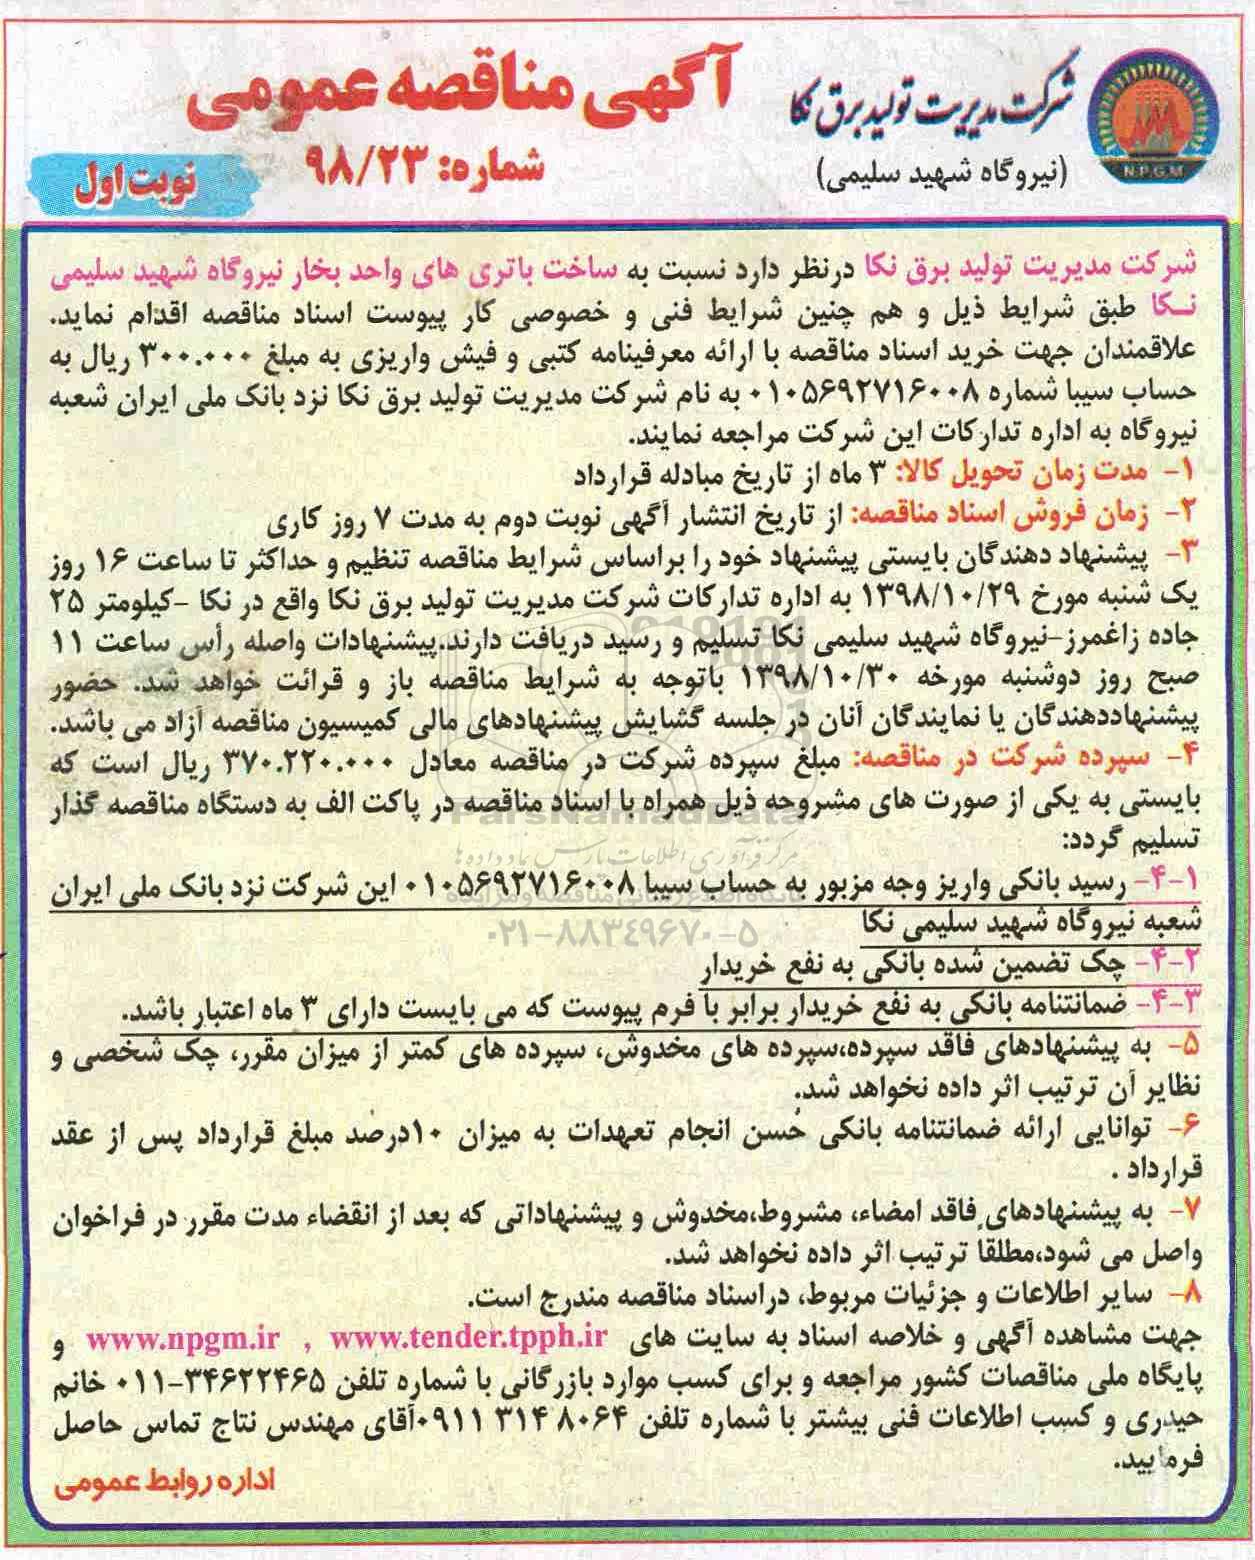 شرکت مدیریت تولید برق نکا
(نیروگاه شهید سلیمی)
N.P.G.M
آگهی مناقصه عمومی
شماره: ۹۸/۲۳
نوبت اول
شرکت مدیریت تولید برق نکا درنظر دارد نسبت به ساخت باتری های واحد بخار نیروگاه شهید سلیمی
نکا طبق شرایط ذیل و هم چنین شرایط فنی و خصوصی کار پیوست اسناد مناقصه اقدام نماید.
علاقمندان جهت خرید اسناد مناقصه با ارائه معرفینامه کتبی و فیش واریزی به مبلغ ۳۰۰.۰۰۰ ریال به
حساب سیبا شماره ۰۱۰۵۶۹۲۷۱۶۰۰۸ به نام شرکت مدیریت تولید برق نکا نزد بانک ملی ایران شعبه
نیروگاه به اداره تدارکات این شرکت مراجعه نمایند.
۱- مدت زمان تحویل کالا: ۳ ماه از تاریخ مبادله قرارداد
۲- زمان فروش اسناد مناقصه: از تاریخ انتشار آگهی نوبت دوم به مدت ۷ روز کاری
۳- پیشنهاد دهندگان بایستی پیشنهاد خود را براساس شرایط مناقصه تنظیم و حداکثر تا ساعت ۱۶ روز
یک شنبه مورخ ۱۳۹۸/۱۰/۲۹ به اداره تدارکات شرکت مدیریت تولید برق نکا واقع در نکا -کیلومتر ۲۵
جاده زاغمرز-نیروگاه شهید سلیمی نکا تسلیم و رسید دریافت دارند.پیشنهادات واصله رأس ساعت ۱۱
صبح روز دوشنبه مورخه ۱۳۹۸/۱۰/۳۰ باتوجه به شرایط مناقصه باز و قرائت خواهد شد. حضور
پیشنهاددهندگان یا نمایندگان آنان در جلسه گشایش پیشنهادهای مالی کمیسیون مناقصه آزاد می باشد.
۴- سپرده شرکت در مناقصه: مبلغ سپرده شرکت در مناقصه معادل ۳۷۰.۲۲۰.۰۰۰ ریال است که
بایستی به یکی از صورت های مشروحه ذیل همراه با اسناد مناقصه در پاکت الف به دستگاه مناقصه گذار
تسلیم گردد:
ParsNamadData
مرکز فرآوری اطلاعات پارس نماد داده ها
۴-۱- رسید بانکی واریز وجه مزبور به حساب سیبا ۰۱۰۵۶۹۲۷۱۶۰۰۸ این شرکت نزد بانک ملی ایران
شعبه نیروگاه شهید سلیمی نکا
۰۲۱-۸۸۳۴۹۶۷۰-۵
۴-۲- چک تضمین شده بانکی به نفع خریدار
۴-۳- ضمانتنامه بانکی به نفع خریدار برابر با فرم پیوست که می بایست دارای ۳ ماه اعتبار باشد.
۵- به پیشنهادهای فاقد سپرده،سپرده های مخدوش، سپرده های کمتر از میزان مقرر، چک شخصی و
نظایر آن ترتیب اثر داده نخواهد شد.
۶- توانایی ارائه ضمانتنامه بانکی حُسن انجام تعهدات به میزان ۱۰درصد مبلغ قرارداد پس از عقد
قرارداد .
۷- به پیشنهادهای فاقد امضاء، مشروط،مخدوش و پیشنهاداتی که بعد از انقضاء مدت مقرر در فراخوان
واصل می شود،مطلقاً ترتیب اثر داده نخواهد شد.
۸- سایر اطلاعات و جزئیات مربوط، دراسناد مناقصه مندرج است.
جهت مشاهده آگهی و خلاصه اسناد به سایت های www.tender.tpph.ir , www.npgm.ir و
پایگاه ملی مناقصات کشور مراجعه و برای کسب موارد بازرگانی با شماره تلفن ۳۴۶۲۲۴۶۵-۰۱۱ خانم
حیدری و کسب اطلاعات فنی بیشتر با شماره تلفن ۰۹۱۱ ۳۱۴ ۸۰۶۴آقای مهندس نتاج تماس حاصل
فرمایید.
اداره روابط عمومی